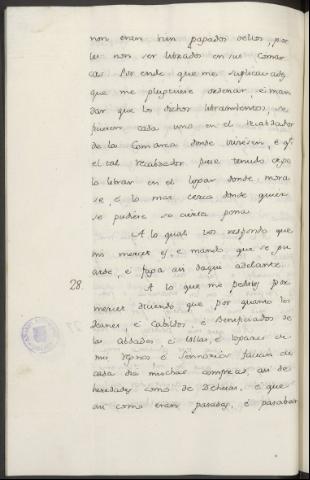 non eran bien pagados dellos, por
les non ser librados en sus comar
cas. Por ende que me suplicavades
que me pluguiese ordenar, é man
dar que los dichos libramientos, se
fiziesen cada uno en el recabdador
de la Comarca donde viviesen, é ql
el tal recabdador fuese tenudo de ge
lo librar en el logar donde mora
se, é lo mas cerca donde quier
se pudiere su cierta
A lo qual vos respondo que
mi merced es, é mando que se gu
arde, é faga asi daqui adelante.
28 A lo que me pedistes por
merced diciendo, que por quanto los
Deanes, é Cabildos, é Beneficiados de
las Abbadias, é villas, é logares de
mis Regnos é Sennorios facian de
cada dia muchas compras, asi de
heredades como de Dehesas, é que
asi como eran pasadas, é pasaban